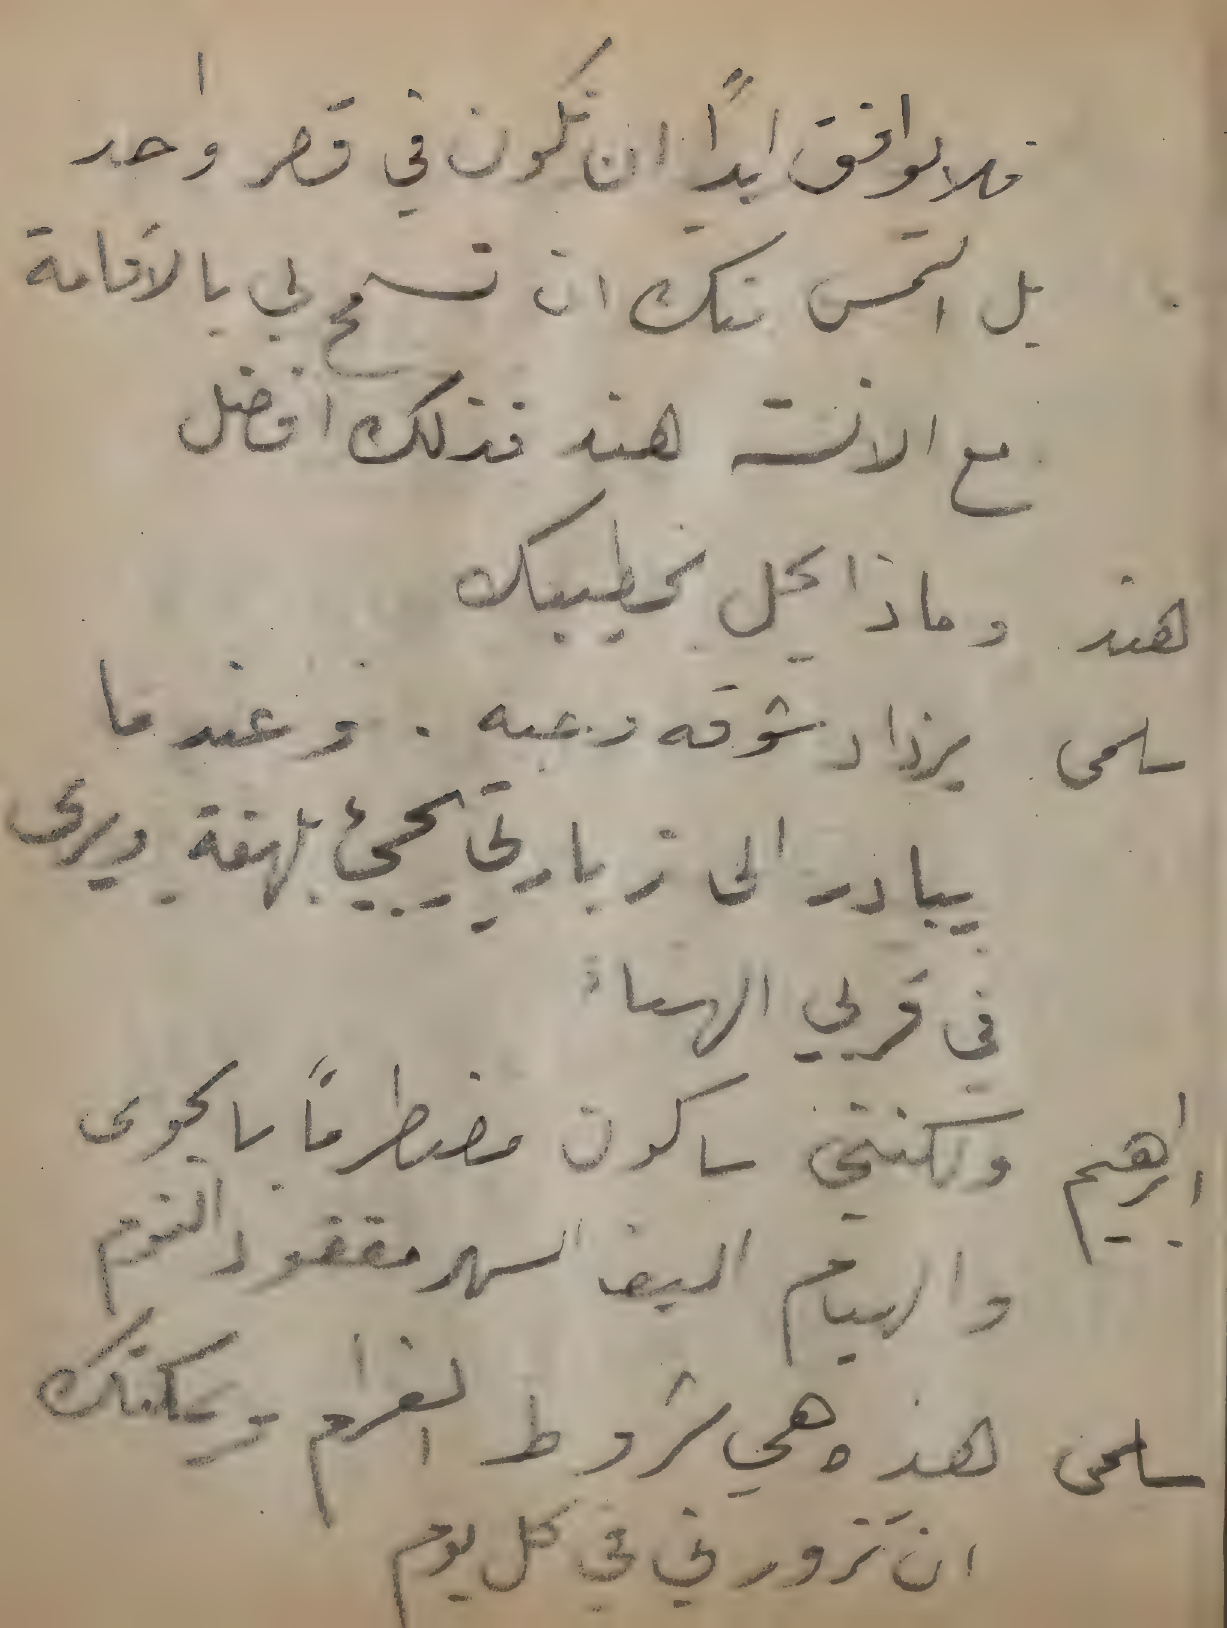 فلا يوافق ابداً ان نكون في قصر واحد
بل التمس منك ان تسمح لي بالاقامة
مع الانسة هند فذلك افضل
هند وماذا يحل بخطيبك
سلمى يزداد شوقه وحبه . وعندما
يبادر الى زيارتي يجيئ بلهفة ويرى
في قربي الهناء
ابرهيم ولكنني ساكون مضطرماً بالجوى
والهيام اليف السهر مفقود النوم
سلمى هذه هي شروط الغرام ويمكنك
ان تزورني في كل يوم